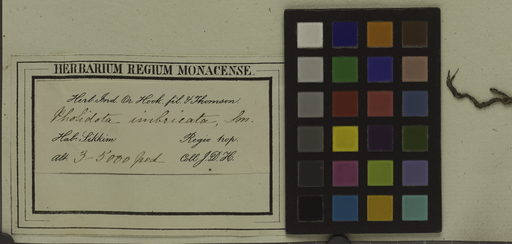 HERBARIUM REGIUM MONACENSE.
Herb. Ind. Or. Hook. fil. & Thomson
Pholidota imbricata, Sm.
Hab. Sikkim Regio trop.
Alt. 3-5000 ped. Coll. J. D. H.